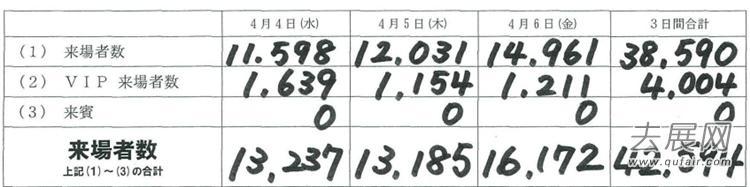 4月4日(水) 4月5日(木) 4月6日(金) 3日間合計
(1) 来場者数 11.598 12.031 14.961 38.590
(2) VIP 来場者数 1.639 1.154 1.211 4.004
(3) 来賓 0 0 0 0
来場者数 13,237 13,185 16,172
上記(1)～(3)の合計
去展网
www.qufair.com